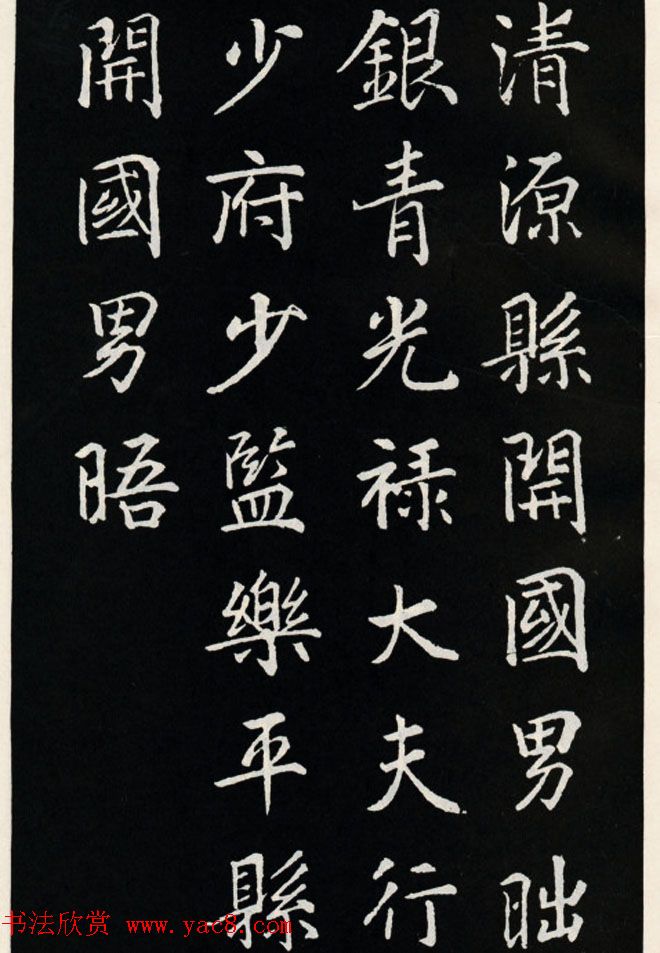 清源縣開國男昢
銀青光禄大夫行
少府少監樂平縣
開國男晤
书法欣赏 www.yac8.com